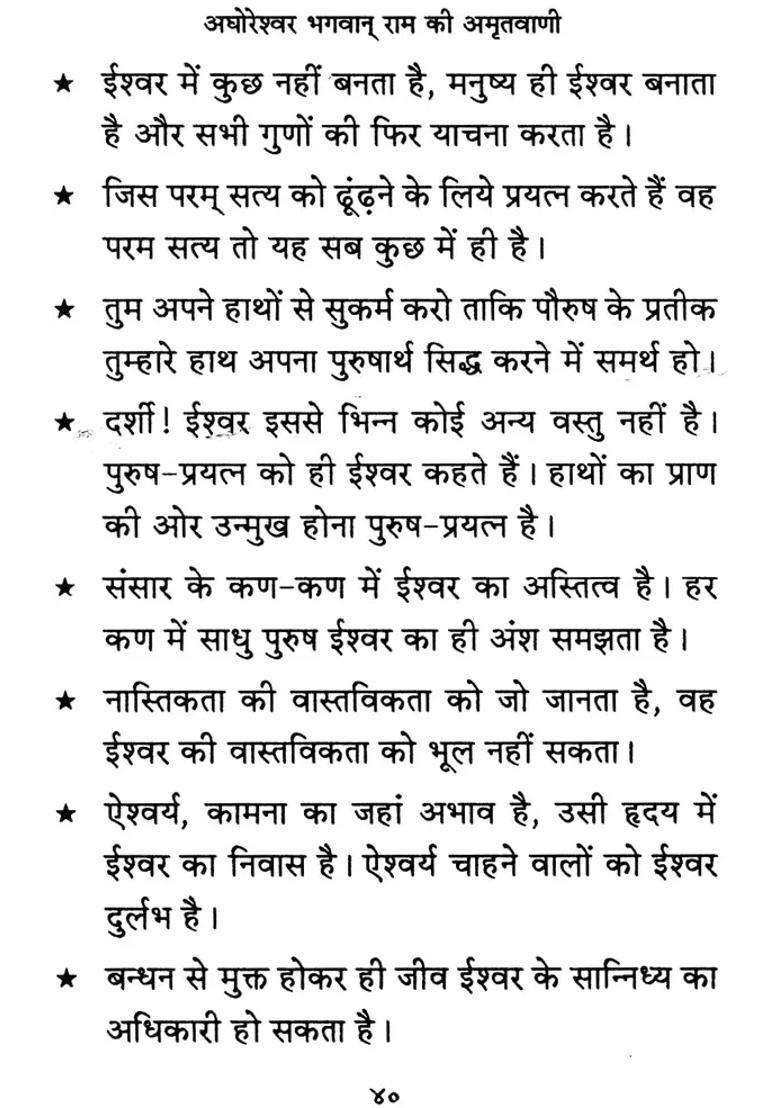 अघोरेश्वर भगवान् राम की अमृतवाणी
★ ईश्वर में कुछ नहीं बनता है, मनुष्य ही ईश्वर बनाता
है और सभी गुणों की फिर याचना करता है।
★ जिस परम् सत्य को ढूंढ़ने के लिये प्रयत्न करते हैं वह
परम सत्य तो यह सब कुछ में ही है।
★ तुम अपने हाथों से सुकर्म करो ताकि पौरुष के प्रतीक
तुम्हारे हाथ अपना पुरुषार्थ सिद्ध करने में समर्थ हो।
★ दर्शी! ईश्वर इससे भिन्न कोई अन्य वस्तु नहीं है।
पुरुष-प्रयत्न को ही ईश्वर कहते हैं। हाथों का प्राण
की ओर उन्मुख होना पुरुष-प्रयत्न है।
★ संसार के कण-कण में ईश्वर का अस्तित्व है। हर
कण में साधु पुरुष ईश्वर का ही अंश समझता है।
★ नास्तिकता की वास्तविकता को जो जानता है, वह
ईश्वर की वास्तविकता को भूल नहीं सकता।
★ ऐश्वर्य, कामना का जहां अभाव है, उसी हृदय में
ईश्वर का निवास है। ऐश्वर्य चाहने वालों को ईश्वर
दुर्लभ है।
★ बन्धन से मुक्त होकर ही जीव ईश्वर के सान्निध्य का
अधिकारी हो सकता है।
४०